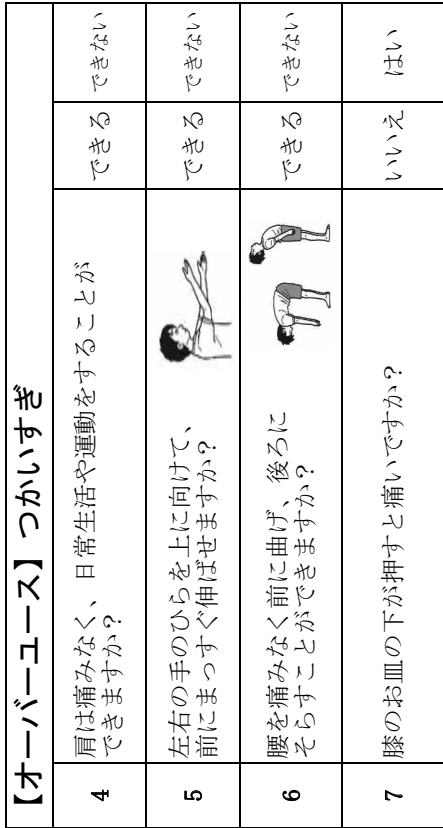 【オーバーユース】つかいすぎ
4
肩は痛みなく、日常生活や運動をすることが
できますか？
できる
できない
5
左右の手のひらを上に向けて、
前にまっすぐ伸ばせますか？
できる
できない
6
腰を痛みなく前に曲げ、後ろに
そらすことができますか？
できる
できない
7
膝のお皿の下が押すと痛いですか？
いいえ
はい